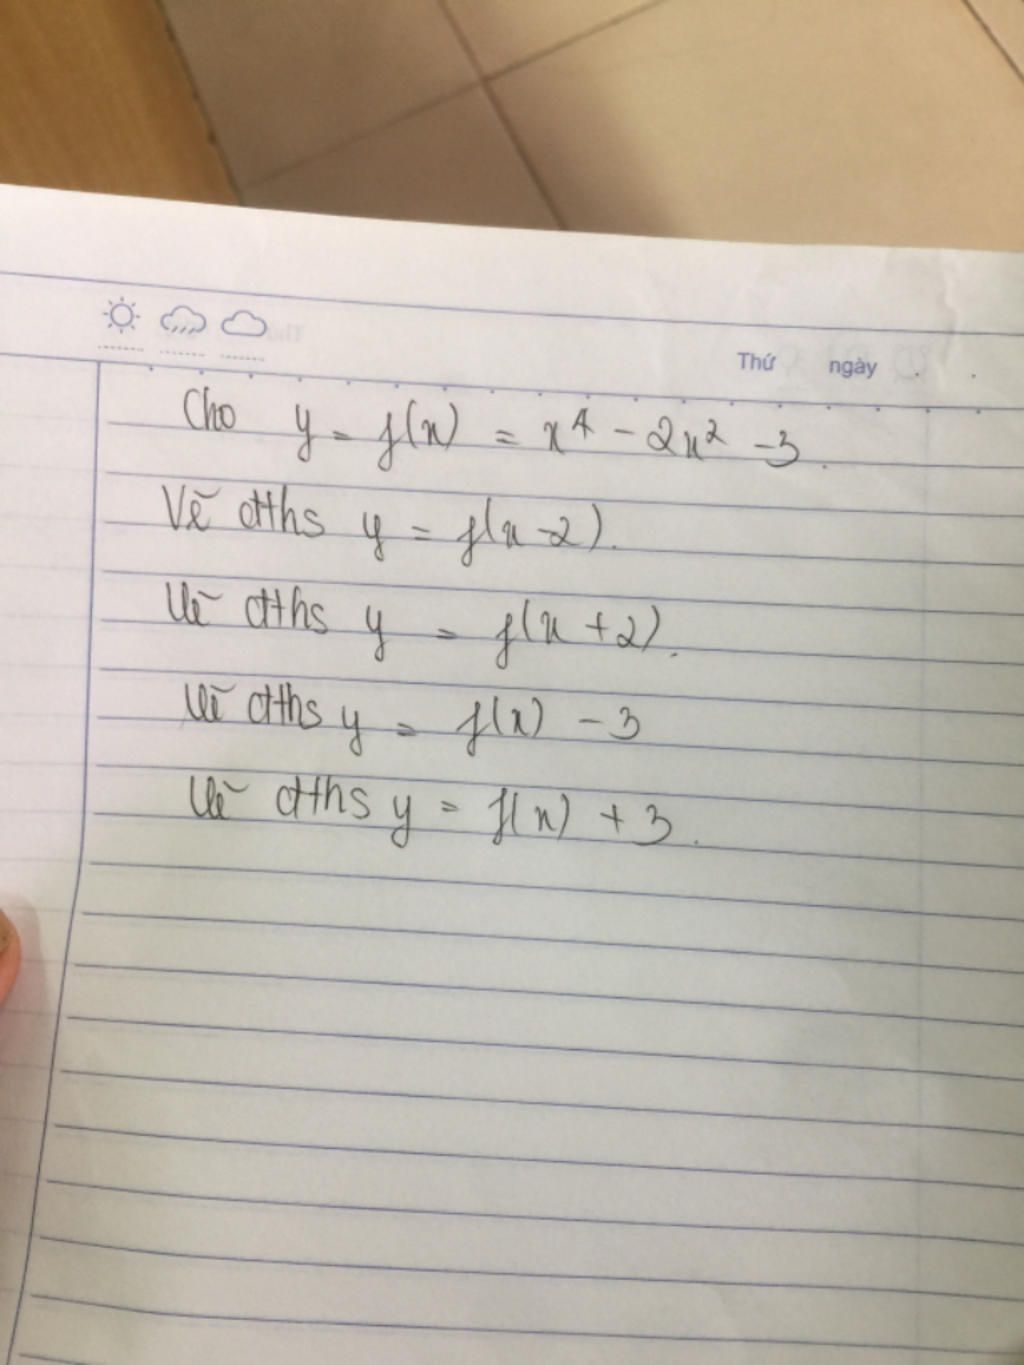 Thứ ngày
Cho y = f(x) = x⁴ - 2x² - 3.
Vẽ đths y = f(x-2).
Vẽ đths y = f(x+2).
Vẽ đths y = f(x) - 3
Vẽ đths y = f(x) + 3.